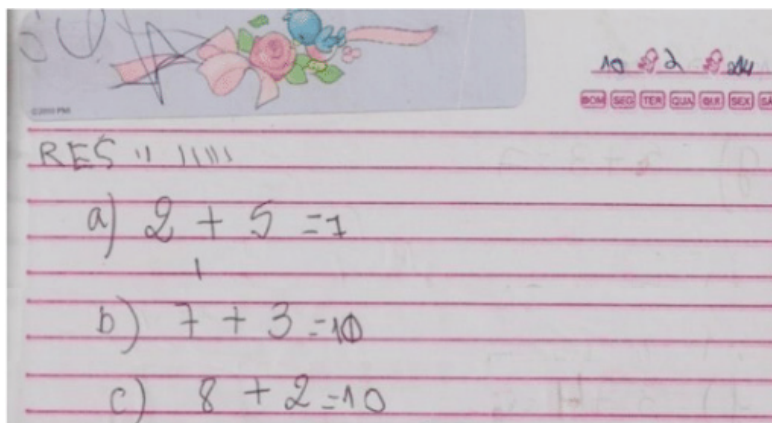 10 2 24
DOM SEG TER QUA QUI SEX SÁ
RES " |||||
a) 2 + 5 = 7
b) 7 + 3 = 10
c) 8 + 2 = 10